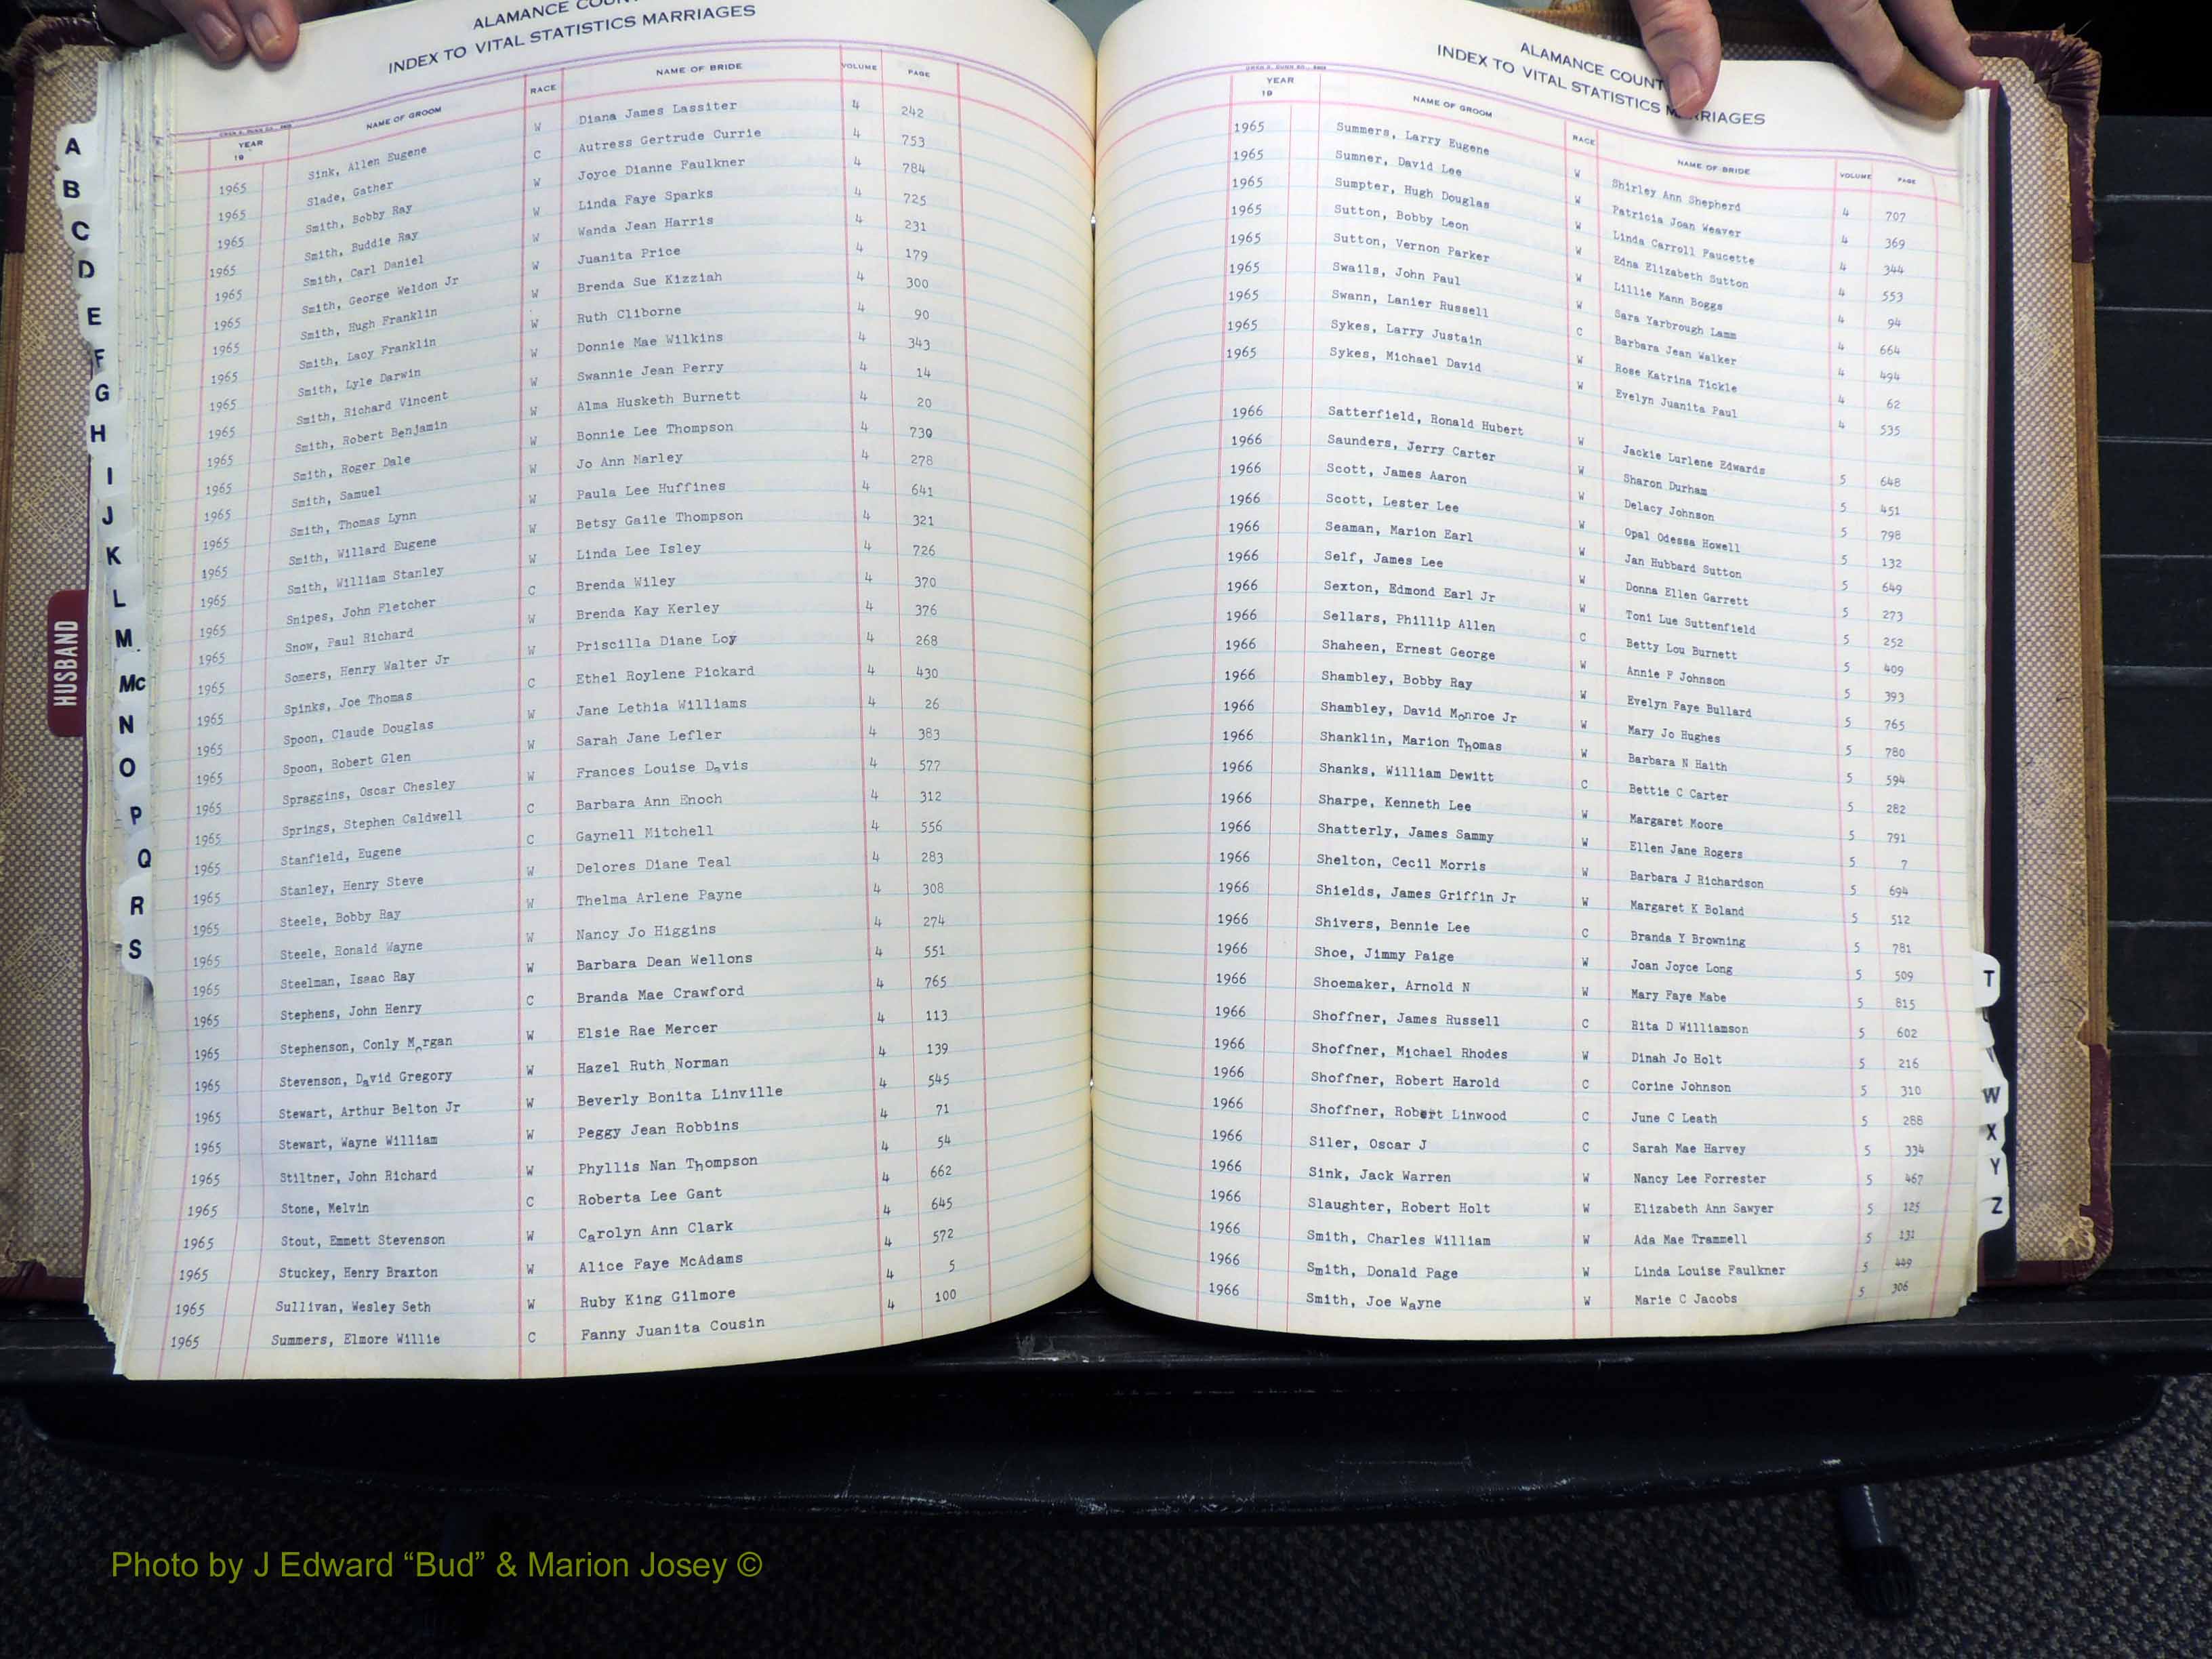 ALAMANCE COUN
INDEX TO VITAL STATISTICS MARRIAGES
YEAR 19 NAME OF GROOM RACE NAME OF BRIDE VOLUME PAGE
1965 Sink, Allen Eugene W Diana James Lassiter 4 242
1965 Slade, Gather C Autress Gertrude Currie 4 753
1965 Smith, Bobby Ray W Joyce Dianne Faulkner 4 784
1965 Smith, Buddie Ray W Linda Faye Sparks 4 725
1965 Smith, Carl Daniel W Wanda Jean Harris 4 231
1965 Smith, George Weldon Jr W Juanita Price 4 179
1965 Smith, Hugh Franklin W Brenda Sue Kizziah 4 300
1965 Smith, Lacy Franklin W Ruth Cliborne 4 90
1965 Smith, Lyle Darwin W Donnie Mae Wilkins 4 343
1965 Smith, Richard Vincent W Swannie Jean Perry 4 14
1965 Smith, Robert Benjamin W Alma Husketh Burnett 4 20
1965 Smith, Roger Dale W Bonnie Lee Thompson 4 730
1965 Smith, Samuel W Jo Ann Marley 4 278
1965 Smith, Thomas Lynn W Paula Lee Huffines 4 641
1965 Smith, Willard Eugene W Betsy Gaile Thompson 4 321
1965 Smith, William Stanley W Linda Lee Isley 4 726
1965 Snipes, John Fletcher C Brenda Wiley 4 370
1965 Snow, Paul Richard W Brenda Kay Kerley 4 376
1965 Somers, Henry Walter Jr W Priscilla Diane Loy 4 268
1965 Spinks, Joe Thomas C Ethel Roylene Pickard 4 430
1965 Spoon, Claude Douglas W Jane Lethia Williams 4 26
1965 Spoon, Robert Glen W Sarah Jane Lefler 4 383
1965 Spraggins, Oscar Chesley W Frances Louise Davis 4 577
1965 Springs, Stephen Caldwell C Barbara Ann Enoch 4 312
1965 Stanfield, Eugene C Gaynell Mitchell 4 556
1965 Stanley, Henry Steve W Delores Diane Teal 4 283
1965 Steele, Bobby Ray W Thelma Arlene Payne 4 308
1965 Steele, Ronald Wayne W Nancy Jo Higgins 4 274
1965 Steelman, Isaac Ray W Barbara Dean Wellons 4 551
1965 Stephens, John Henry C Branda Mae Crawford 4 765
1965 Stephenson, Conly Morgan W Elsie Rae Mercer 4 113
1965 Stevenson, David Gregory W Hazel Ruth Norman 4 139
1965 Stewart, Arthur Belton Jr W Beverly Bonita Linville 4 545
1965 Stewart, Wayne William W Peggy Jean Robbins 4 71
1965 Stiltner, John Richard W Phyllis Nan Thompson 4 54
1965 Stone, Melvin C Roberta Lee Gant 4 662
1965 Stout, Emmett Stevenson W Carolyn Ann Clark 4 645
1965 Stuckey, Henry Braxton W Alice Faye McAdams 4 572
1965 Sullivan, Wesley Seth W Ruby King Gilmore 4 5
1965 Summers, Elmore Willie C Fanny Juanita Cousin 4 100
A
B
C
D
E
F
G
H
I
J
K
L
M
Mc
N
O
P
Q
R
S
HUSBAND
ALAMANCE COUNT
INDEX TO VITAL STATISTICS M RRIAGES
YEAR 19 NAME OF GROOM RACE NAME OF BRIDE VOLUME PAGE
1965 Summers, Larry Eugene W Shirley Ann Shepherd 4 707
1965 Sumner, David Lee W Patricia Joan Weaver 4 369
1965 Sumpter, Hugh Douglas W Linda Carroll Faucette 4 344
1965 Sutton, Bobby Leon W Edna Elizabeth Sutton 4 553
1965 Sutton, Vernon Parker W Lillie Mann Boggs 4 94
1965 Swails, John Paul W Sara Yarbrough Lamm 4 664
1965 Swann, Lanier Russell C Barbara Jean Walker 4 494
1965 Sykes, Larry Justain W Rose Katrina Tickle 4 62
1965 Sykes, Michael David W Evelyn Juanita Paul 4 535
1966 Satterfield, Ronald Hubert W Jackie Lurlene Edwards 5 648
1966 Saunders, Jerry Carter W Sharon Durham 5 451
1966 Scott, James Aaron W Delacy Johnson 5 798
1966 Scott, Lester Lee W Opal Odessa Howell 5 132
1966 Seaman, Marion Earl W Jan Hubbard Sutton 5 649
1966 Self, James Lee W Donna Ellen Garrett 5 273
1966 Sexton, Edmond Earl Jr W Toni Lue Suttenfield 5 252
1966 Sellars, Phillip Allen C Betty Lou Burnett 5 409
1966 Shaheen, Ernest George W Annie F Johnson 5 393
1966 Shambley, Bobby Ray W Evelyn Faye Bullard 5 765
1966 Shambley, David Monroe Jr W Mary Jo Hughes 5 780
1966 Shanklin, Marion Thomas W Barbara N Haith 5 594
1966 Shanks, William Dewitt C Bettie C Carter 5 282
1966 Sharpe, Kenneth Lee W Margaret Moore 5 791
1966 Shatterly, James Sammy W Ellen Jane Rogers 5 7
1966 Shelton, Cecil Morris W Barbara J Richardson 5 694
1966 Shields, James Griffin Jr W Margaret K Boland 5 512
1966 Shivers, Bennie Lee C Branda Y Browning 5 781
1966 Shoe, Jimmy Paige W Joan Joyce Long 5 509
1966 Shoemaker, Arnold N W Mary Faye Mabe 5 815
1966 Shoffner, James Russell C Rita D Williamson 5 602
1966 Shoffner, Michael Rhodes W Dinah Jo Holt 5 216
1966 Shoffner, Robert Harold C Corine Johnson 5 310
1966 Shoffner, Robert Linwood C June C Leath 5 288
1966 Siler, Oscar J C Sarah Mae Harvey 5 334
1966 Sink, Jack Warren W Nancy Lee Forrester 5 467
1966 Slaughter, Robert Holt W Elizabeth Ann Sawyer 5 125
1966 Smith, Charles William W Ada Mae Trammell 5 131
1966 Smith, Donald Page W Linda Louise Faulkner 5 449
1966 Smith, Joe Wayne W Marie C Jacobs 5 306
T
W
X
Y
Z
Photo by J Edward “Bud” & Marion Josey ©